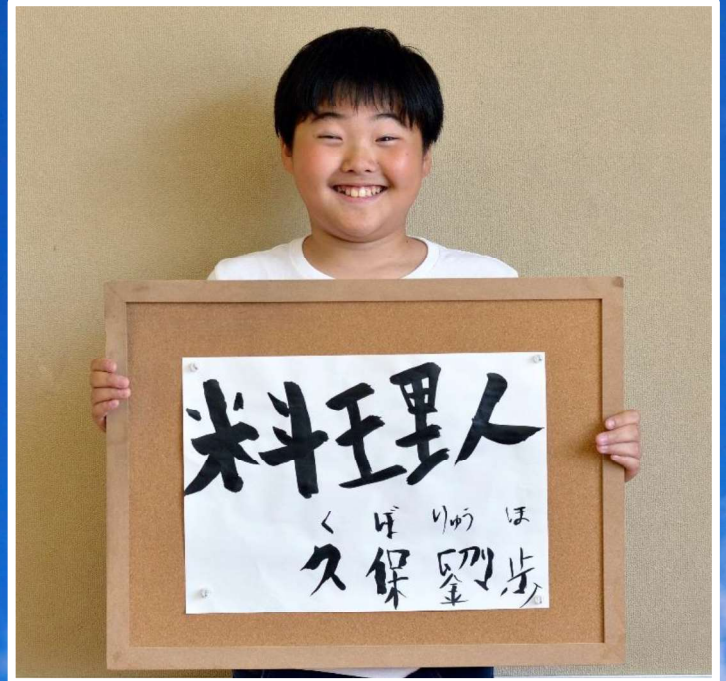 料理人
くぼ りゅうほ
久保 劉歩